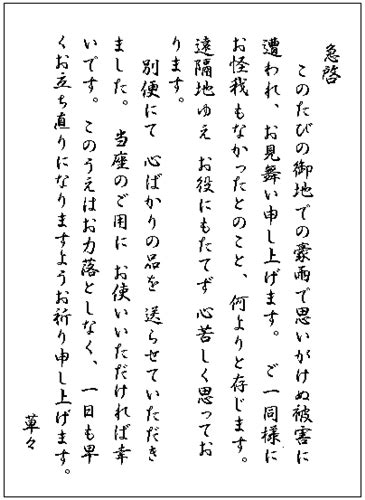 急啓
このたびの御地での豪雨で思いがけぬ被害に
遭われ、お見舞い申し上げます。ご一同様に
お怪我もなかったとのこと、何よりと存じます。
遠隔地ゆえ お役にもたてず 心苦しく思ってお
ります。
別便にて 心ばかりの品を 送らせていただき
ました。 当座のご用に お使いいただければ幸
いです。 このうえはお力落としなく、一日も早
くお立ち直りになりますようお祈り申し上げます。
草々